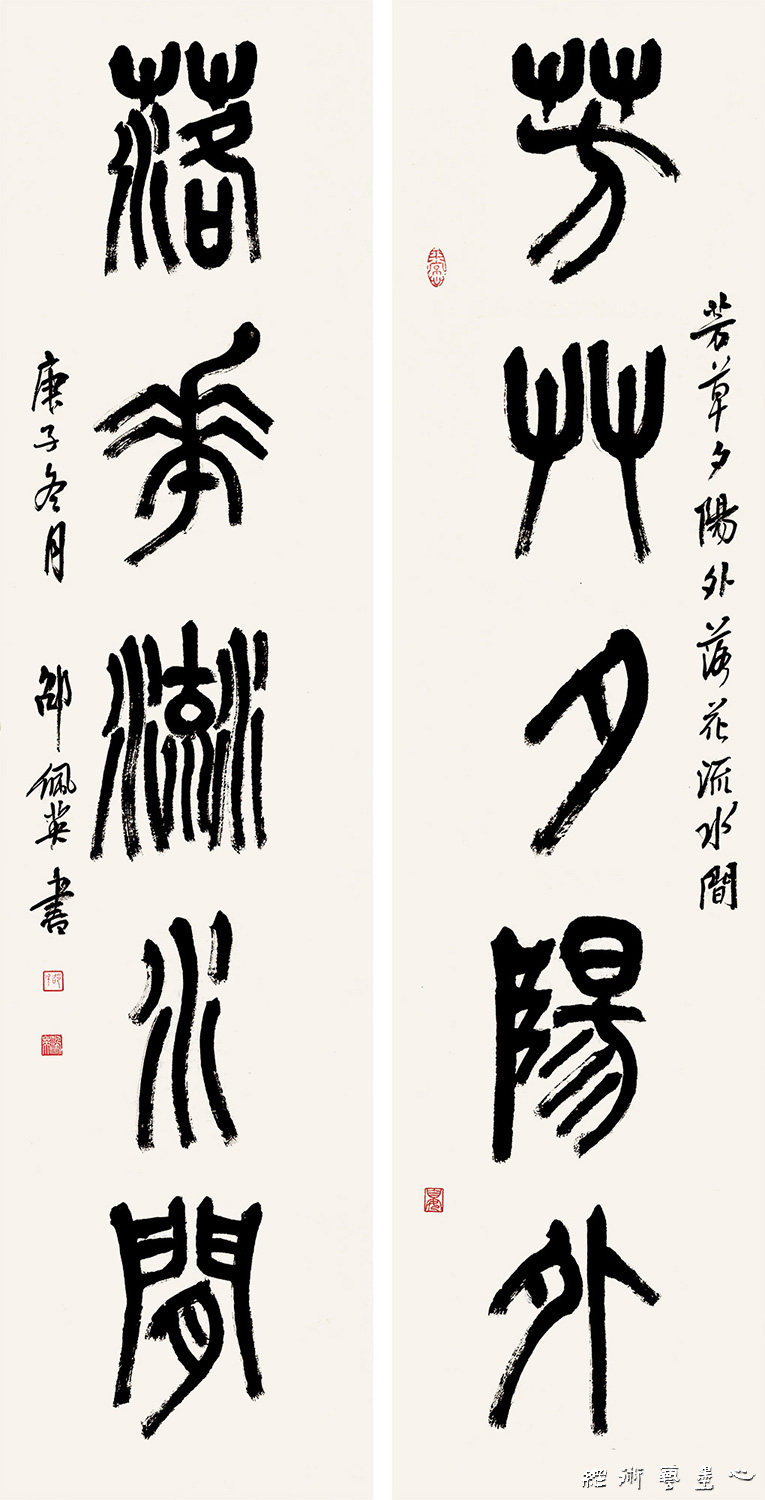 芳艸夕陽外
芳草夕陽外落花流水間
落花流水間
庚子冬月 邵佩英書
心墨藝術館